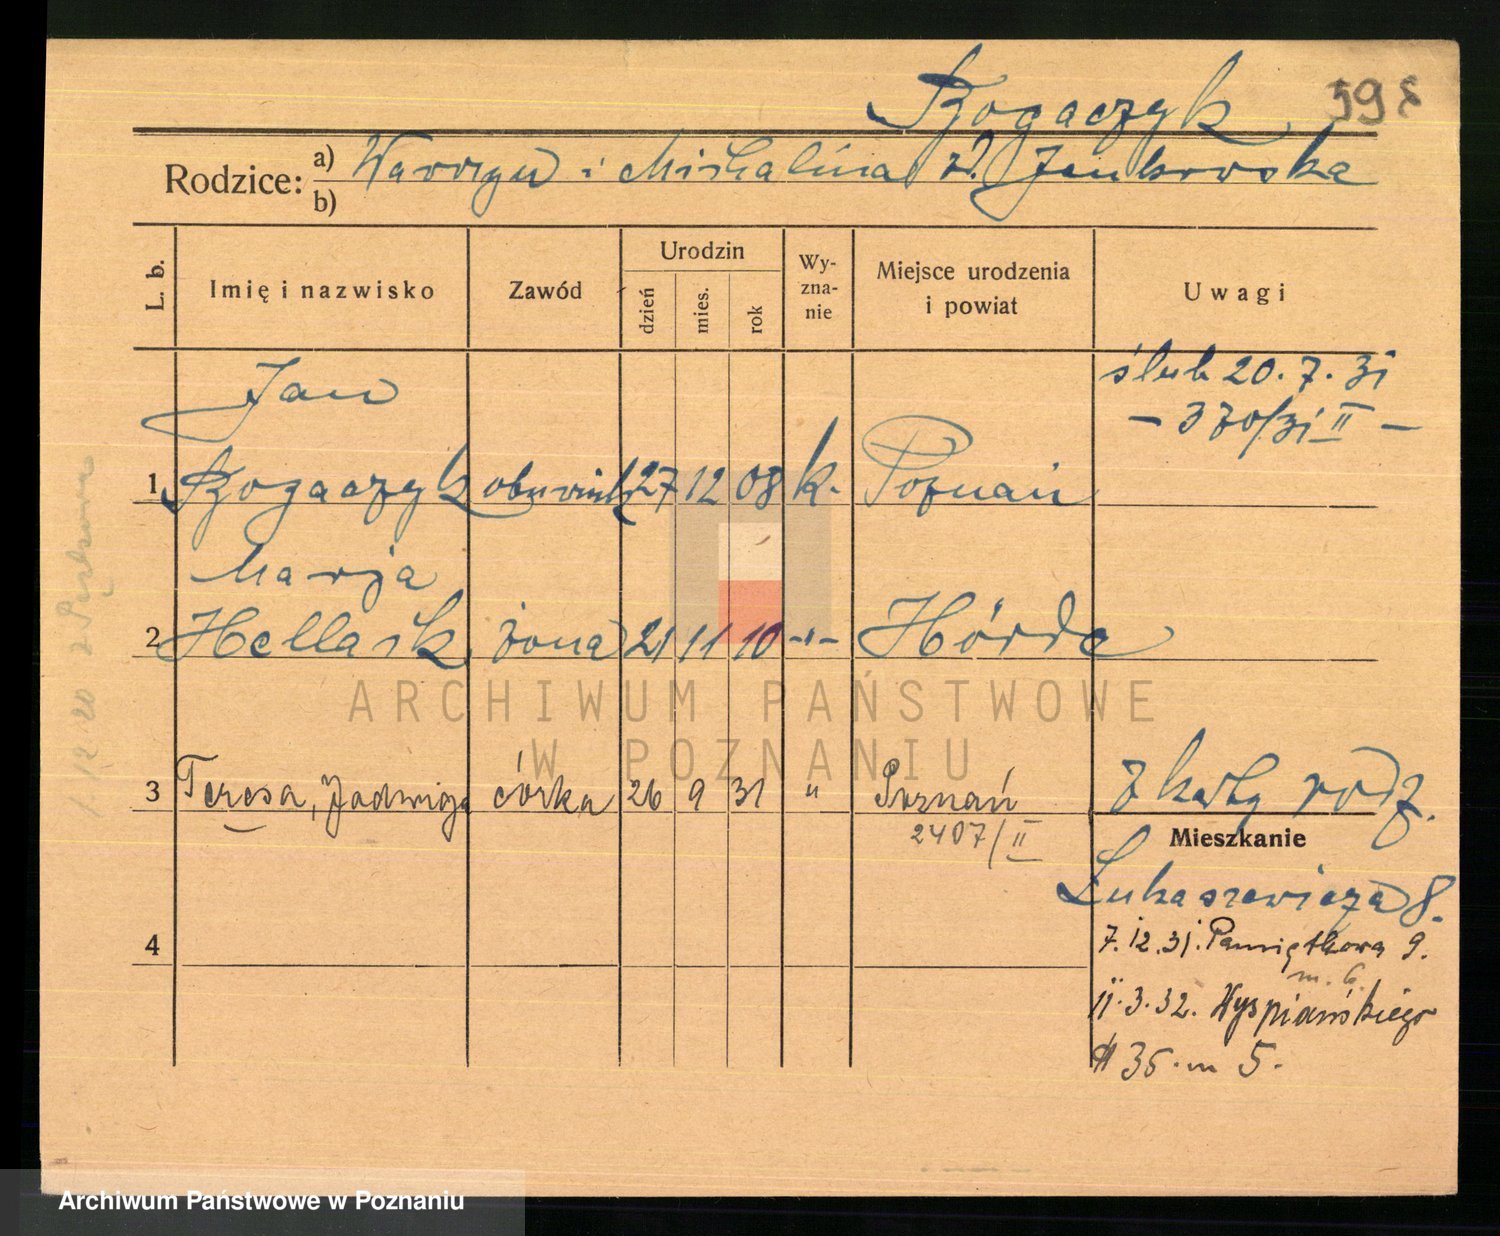 Rogaczyk 598
Rodzice: a) Wawrzyn i Michalina z d. Jankowska
b)
L. b. Imię i nazwisko Zawód Urodzin dzień mies. rok Wy-zna-nie Miejsce urodzenia i powiat Uwagi
Jan ślub 20.7.31
- 370/31 II -
1 Rogaczyk obuwnik 27 12 08 k. Poznań
Marja
2 Hellasik żona 21 11 10 -"- Hörde
3 Teresa, Jadwiga córka 26 9 31 " Poznań z karty rodz.
2407/II
Mieszkanie
Łukaszewicza 8.
4
7.12.31. Pamiątkowa 9.
m. 6.
11.3.32. Wyspiańskiego
35 m 5.
ARCHIWUM PAŃSTWOWE
W POZNANIU
Archiwum Państwowe w Poznaniu